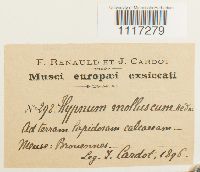 1117279
F. RENAULD ET J. CARDOT
Musci europaei exsiccati
No 292. Hypnum molluscum Hedw.
Ad terram lapidosam calcaream
Meuse: Brouennes.
Leg. J. Cardot, 1896.